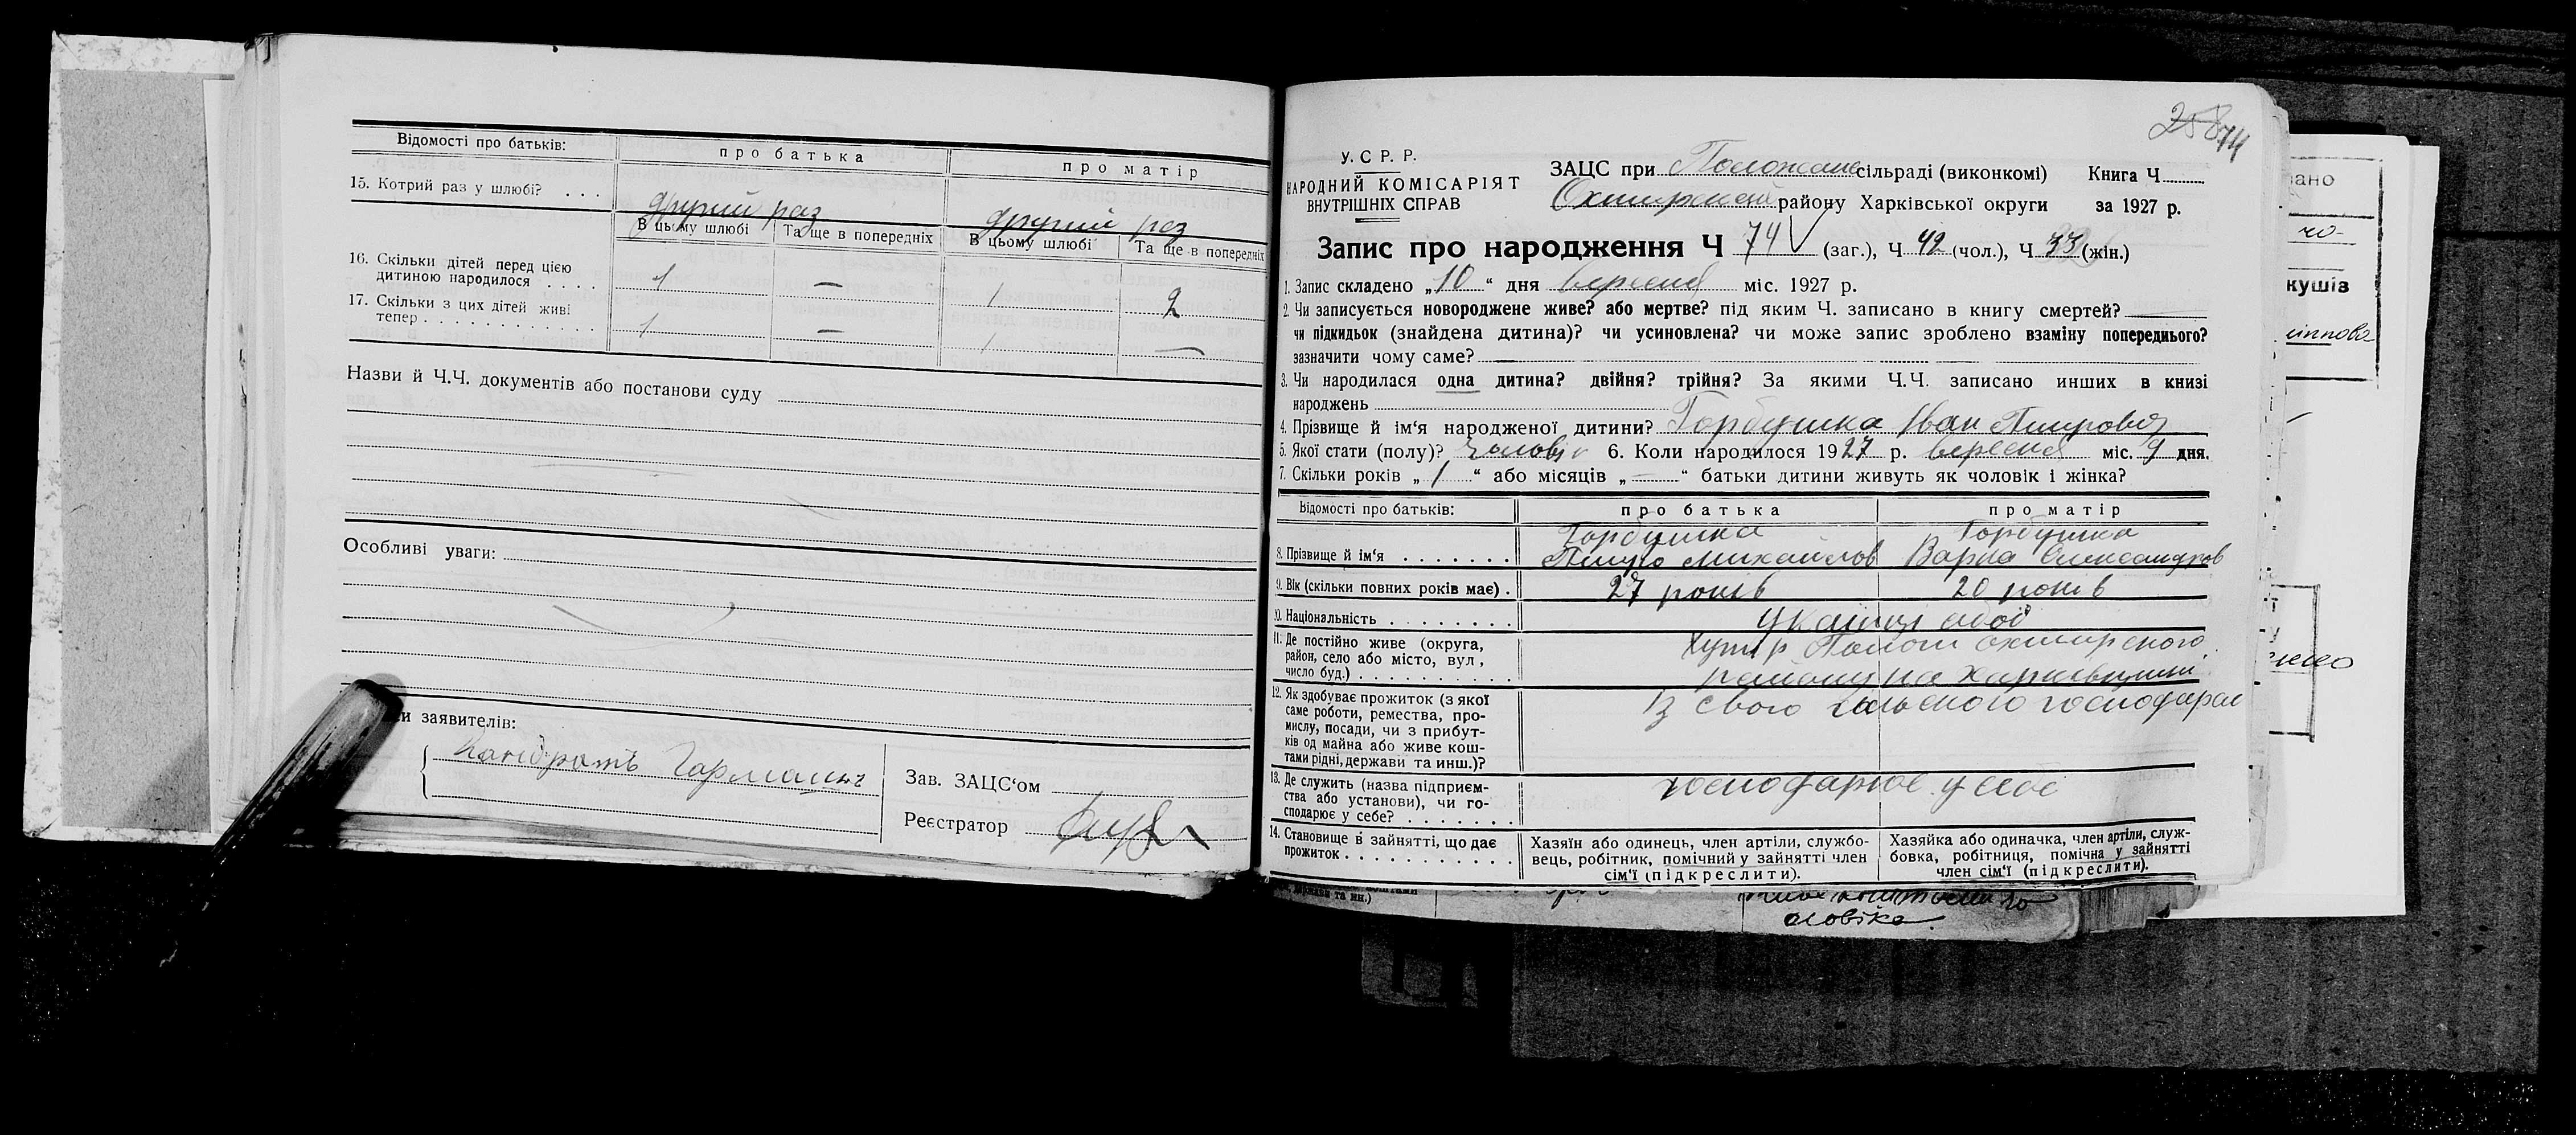 Відомості про батьків: про батька про матір
15. Котрий раз у шлюбі? . . . другий раз другий раз
В цьому шлюбі Та ще в попередніх В цьому шлюбі Та ще в попередніх
16. Скільки дітей перед цією
дитиною народилося . . . . 1 — 1 2
17. Скільки з цих дітей живі
тепер . . . . . . . . . . . . . 1 — 1 —
Назви й Ч.Ч. документів або постанови суду
Особливі уваги:
заявителів:
Кондратъ
Зав. ЗАЦС‘ом
Реєстратор
У. С Р. Р.
НАРОДНИЙ КОМІСАРІЯТ
ВНУТРІШНІХ СПРАВ
ЗАЦС при сільраді (виконкомі) Книга Ч
району Харківської округи за 1927 р.
Запис про народження Ч 74 (заг.), Ч 42 (чол.), Ч 33 (жін.)
1. Запис складено „10“ дня вересня міс. 1927 р.
2. Чи записується новороджене живе? або мертве? під яким Ч. записано в книгу смертей?
чи підкидьок (знайдена дитина)? чи усиновлена? чи може запис зроблено взаміну попереднього?
зазначити чому саме? —
3. Чи народилася одна дитина? двійня? трійня? За якими Ч.Ч. записано инших в книзі
народжень
4. Прізвище й ім‘я народженої дитини? Горбушка Іван Петрович
5. Якої стати (полу)? чоловіч 6. Коли народилося 1927 р. вересня міс. 9 дня.
7. Скільки років „1“ або місяців „—“ батьки дитини живуть як чоловік і жінка?
Відомості про батьків: про батька про матір
Горбушка Горбушка
8. Прізвище й ім‘я . . . . . . . Петро Михайлов Варка Олександров
9. Вік (скільки повних років має) . 27 років 20 років
10. Національність . . . . . . . .
11. Де постійно живе (округа,
район, село або місто, вул.,
число буд.) . . . . . . . . . . . району на Харківщині
12. Як здобуває прожиток (з якої із свого сільского господарс
саме роботи, ремества, про-
мислу, посади, чи з прибут-
ків од майна або живе кош-
тами рідні, держави та инш.)?
13. Де служить (назва підприєм- господарює у себе
ства або установи), чи го-
сподарює у себе? . . . . . . .
14. Становище в зайнятті, що дає
прожиток . . . . . . . . . . . .
Хазяїн або одинець, член артіли, службо-
вець, робітник, помічний у зайнятті член
сім‘ї (підкреслити).
Хазяйка або одиначка, член артіли, служ-
бовка, робітниця, помічна у зайнятті
член сім‘ї (підкреслити).
ржави та ин.)
оловіка.
ано
кушів